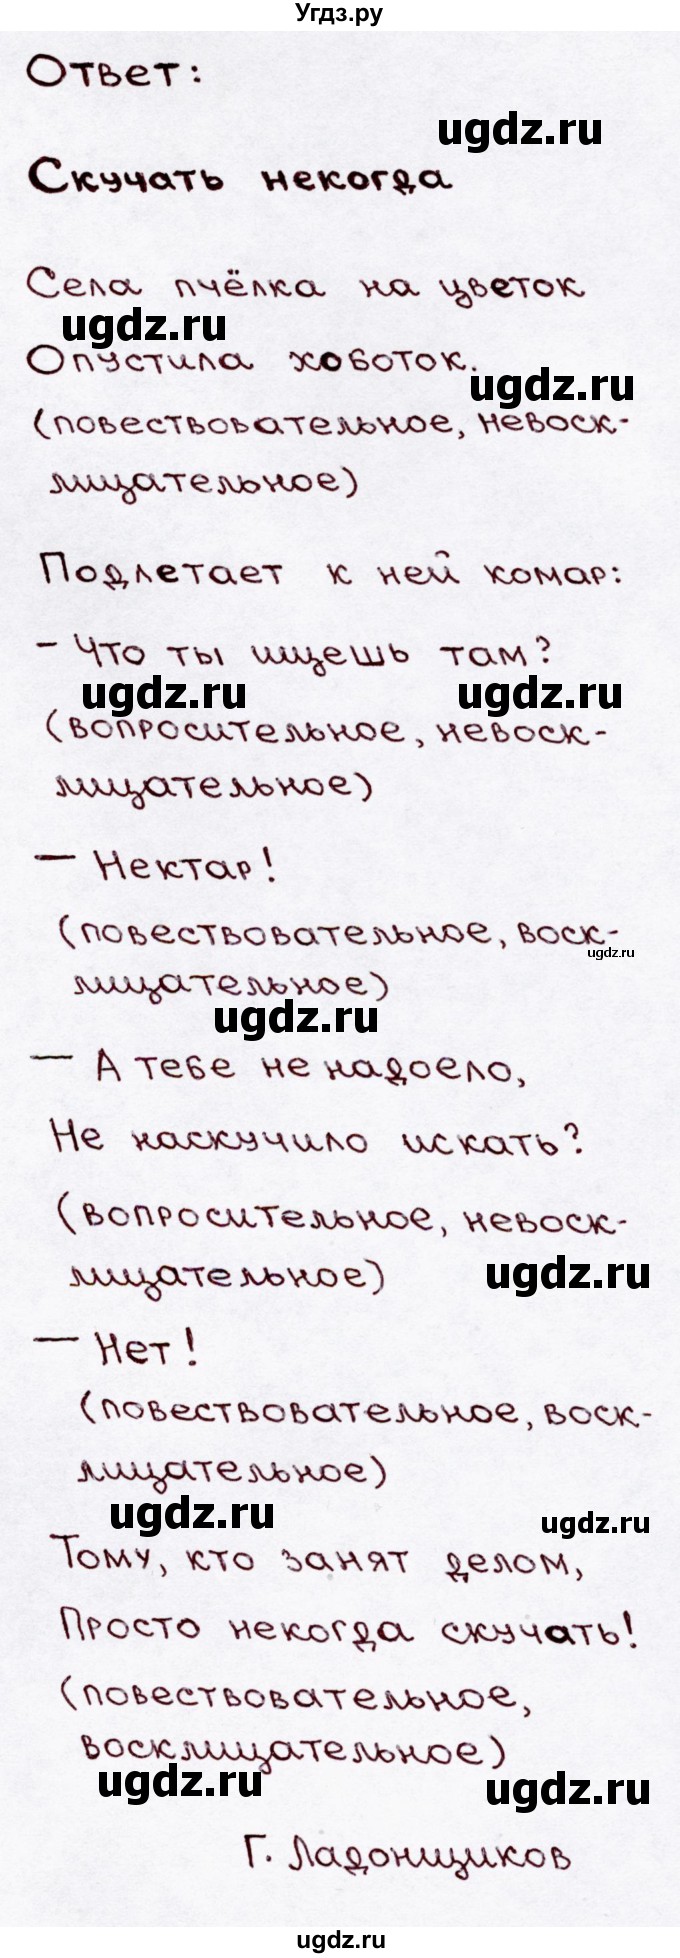 Угдз.ру
Ответ:
ugdz.ru
Скучать некогда
Села пчёлка на цветок
ugdz.ru
Опустила хоботок.
ugdz.ru
(повествовательное, невоск-
лицательное)
Подлетает к ней комар:
- Что ты ищешь там?
ugdz.ru ugdz.ru
(вопросительное, невоск-
лицательное)
— Нектар!
(повествовательное, воск-
ugdz.ru
лицательное)
ugdz.ru
— А тебе не надоело,
Не наскучило искать?
(вопросительное, невоск-
лицательное)
ugdz.ru
— Нет!
(повествовательное, воск-
лицательное)
ugdz.ru ugdz.ru
Тому, кто занят делом,
Просто некогда скучать!
(повествовательное,
восклицательное)
ugdz.ru ugdz.ru
Г. Ладонщиков
ugdz.ru